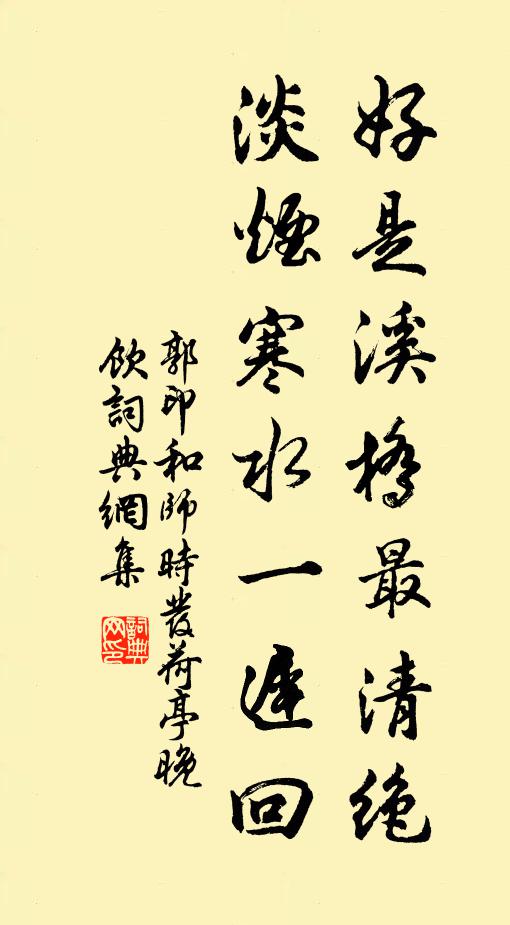 好是溪橋最清絕
淡煙寒水一遲回
郭印和師時發荷亭晚
飲詞典網集
詞典網印